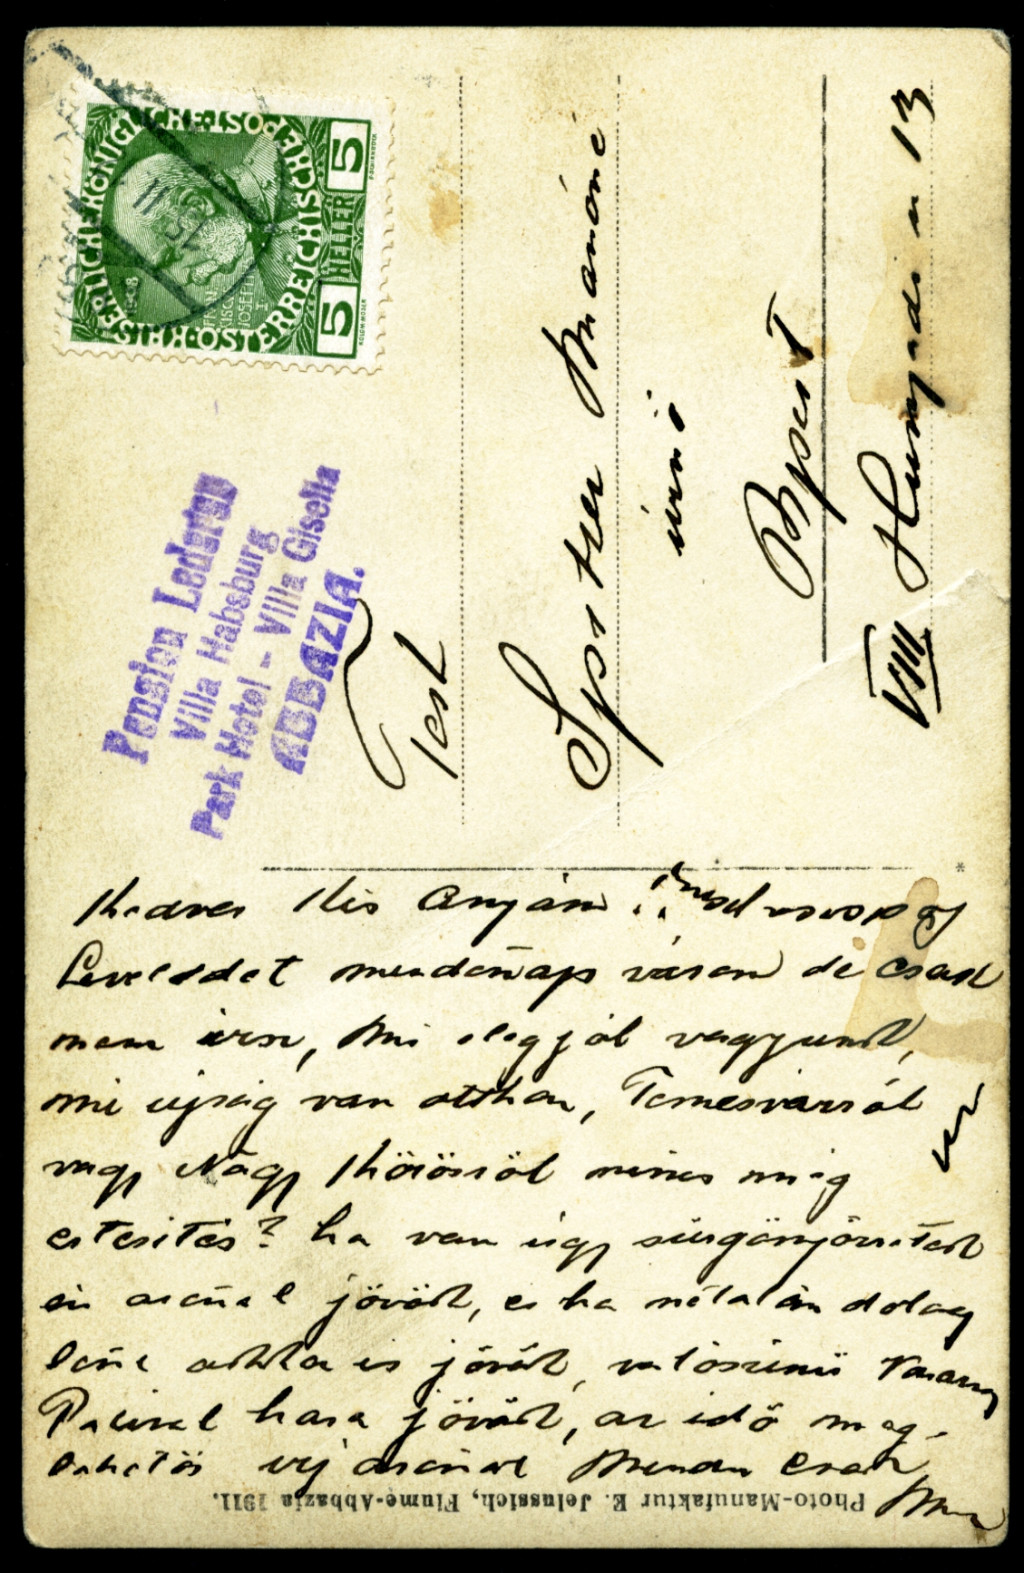 KAISERLICHE KÖNIGLICHE ÖSTERREICHISCHE POST
5 HELLER 5
FRANZ JOSEPH I
1908
15 II
Pension Lederer
Villa Habsburg
Park Hotel - Villa Gisella
ABBAZIA.
Test
Spitzer Manóné
úrnő
Bpest
VIII Hunyadi u 13
Kedves kis Anyám!
Leveledet mindennap várom de csak
nem írsz, mi elég jól vagyunk,
mi ujság van otthon, Temesvárról
vagy Nagy Kőrösről nincs még
értesítés? ha van úgy sürgönyözzetek
én azonnal jövök, és ha nétalán dolog
lenne akkor is jövök, valószinü
haza jövök, az idő meg-
lehetős
Photo-Manufaktur E. Jelussich, Fiume-Abbazia 1911.